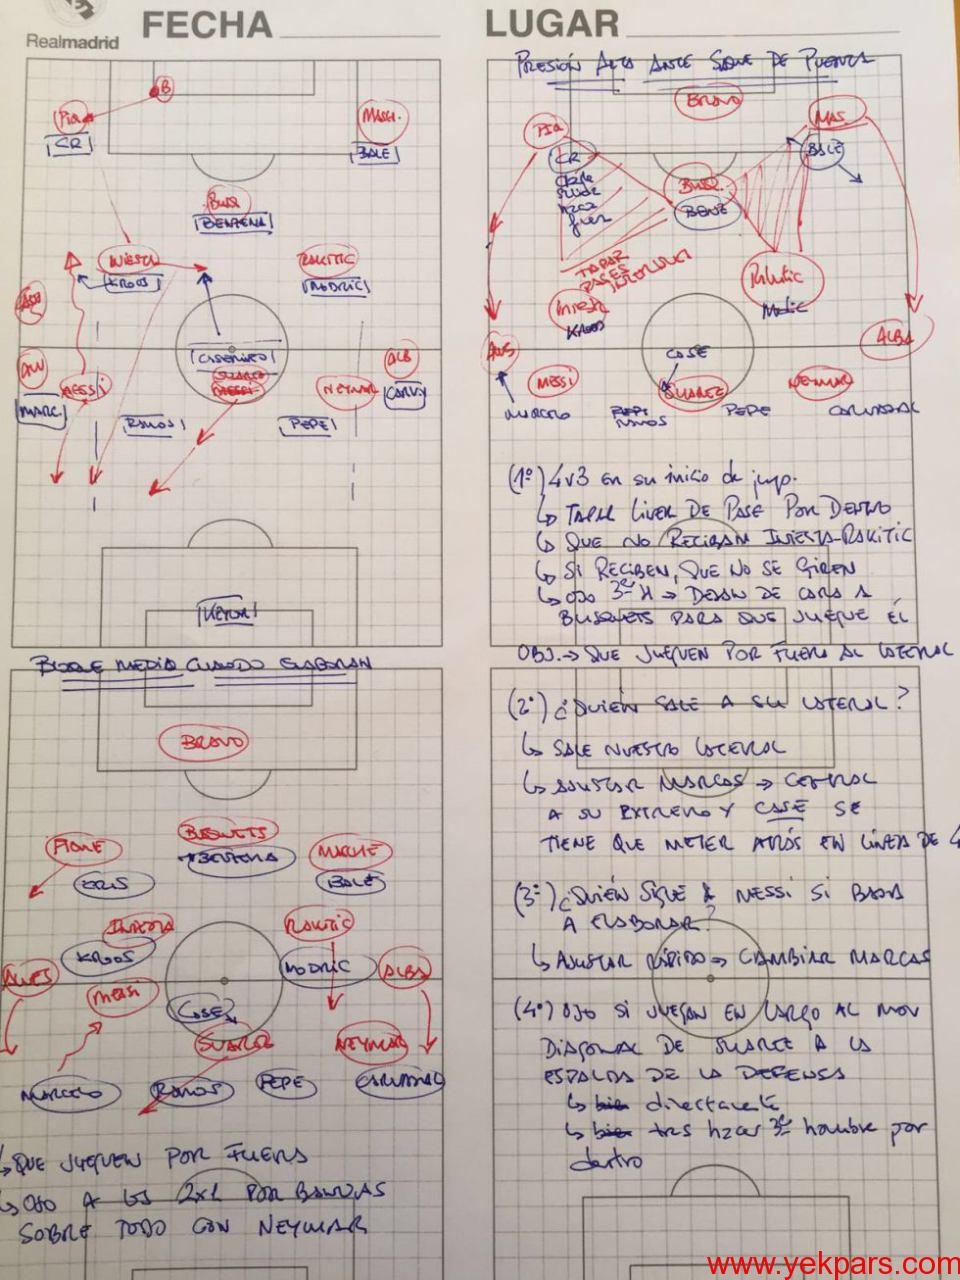 Realmadrid
FECHA
LUGAR
B
PIQ
CR
MASCH.
BALE
BUSQ
BENZEMA
INIESTA
KROOS
RAKITIC
MODRIC
CASEMIRO
SUAREZ
MESSI
NEYMAR
ALB
CARVJ
MARC.
RAMOS
PEPE
KEYLOR
PRESIÓN ALTA ANTE SAQUE DE PUERTA
BRAVO
PIQ
MAS.
CR
BALE
BUSQ.
BENZ
TAPAR
PASES
INTERIORES
INIESTA
KROOS
RAKITIC
MODRIC
ALVES
CASE
ALBA
MESSI
SUAREZ
NEYMAR
MARCELO
RAMOS
PEPE
CARVAJAL
(1º) 4v3 en su inicio de juego.
↳ TAPAR LINEA DE PASE POR DENTRO
↳ QUE NO RECIBAN INIESTA-RAKITIC
↳ SI RECIBEN, QUE NO SE GIREN
↳ OJO 3er H → DEJAN DE CARA A
BUSQUETS PARA QUE JUEGUE ÉL
OBJ. → QUE JUEGUEN POR FUERA AL LATERAL
(2º) ¿QUIÉN SALE A SU LATERAL?
↳ SALE NUESTRO LATERAL
↳ AJUSTAR MARCAS → CENTRAL
A SU EXTREMO Y CASE SE
TIENE QUE METER ATRÁS EN LÍNEA DE 4
(3º) ¿QUIÉN SIGUE A MESSI SI BAJA
A ELABORAR?
↳ AJUSTAR RÁPIDO → CAMBIAR MARCAS
(4º) OJO SI JUEGAN EN LARGO AL MOV
DIAGONAL DE SUAREZ A LA
ESPALDA DE LA DEFENSA
↳ bien directamente
↳ bien tras hacer 3er hombre por
dentro
BLOQUE MEDIO CUANDO ELABORAN
BRAVO
PIQUE
BUSQUETS
BENZEMA
MASCHE
CRIS
BALE
INIESTA
KROOS
RAKITIC
MODRIC
ALVES
MESSI
CASE
ALBA
SUAREZ
NEYMAR
MARCELO
RAMOS
PEPE
CARVAJAL
↳ QUE JUEGUEN POR FUERA
↳ OJO A LOS 2x1 POR BANDAS
SOBRE TODO CON NEYMAR
www.yekpars.com